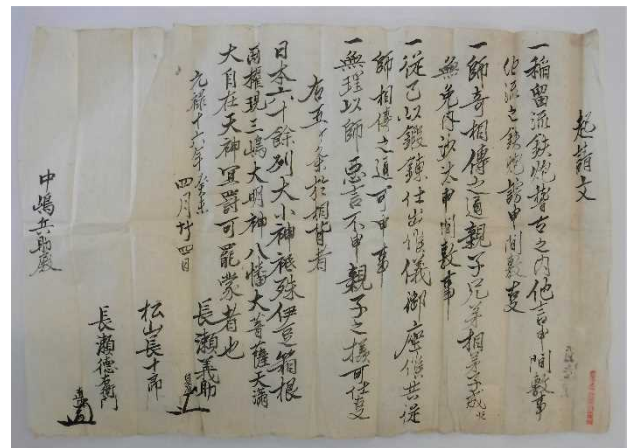 起請文
一稲留流鉄炮稽古之内他言申間敷事
他流之鉄炮誹申間敷事
一師奇相傳之通親子兄弟相弟子成共
無免内致太申間敷事
一従己以鍛錬仕出候儀御座候共従
師相傳之通可申事
一無理以師悪言不申親子之様可仕事
右五ヶ条於相背者
日本六十餘列大小神祇殊伊豆箱根
両権現三嶋大明神八幡大菩薩天満
大自在天神冥罸可罷蒙者也
元禄十六年癸未
四月廿四日
長瀬義助
松山長十郎
長瀬徳右衛門
中嶋兵助殿